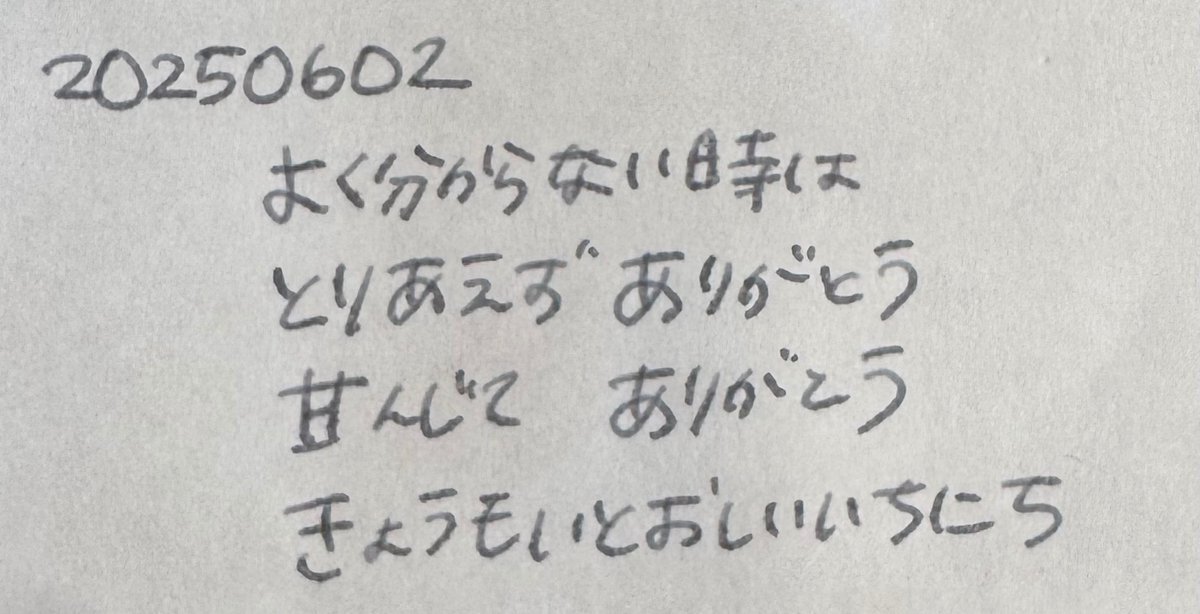 20250602
よく分からない時は
とりあえず ありがとう
甘んじて ありがとう
きょうもいとおしいいちにち